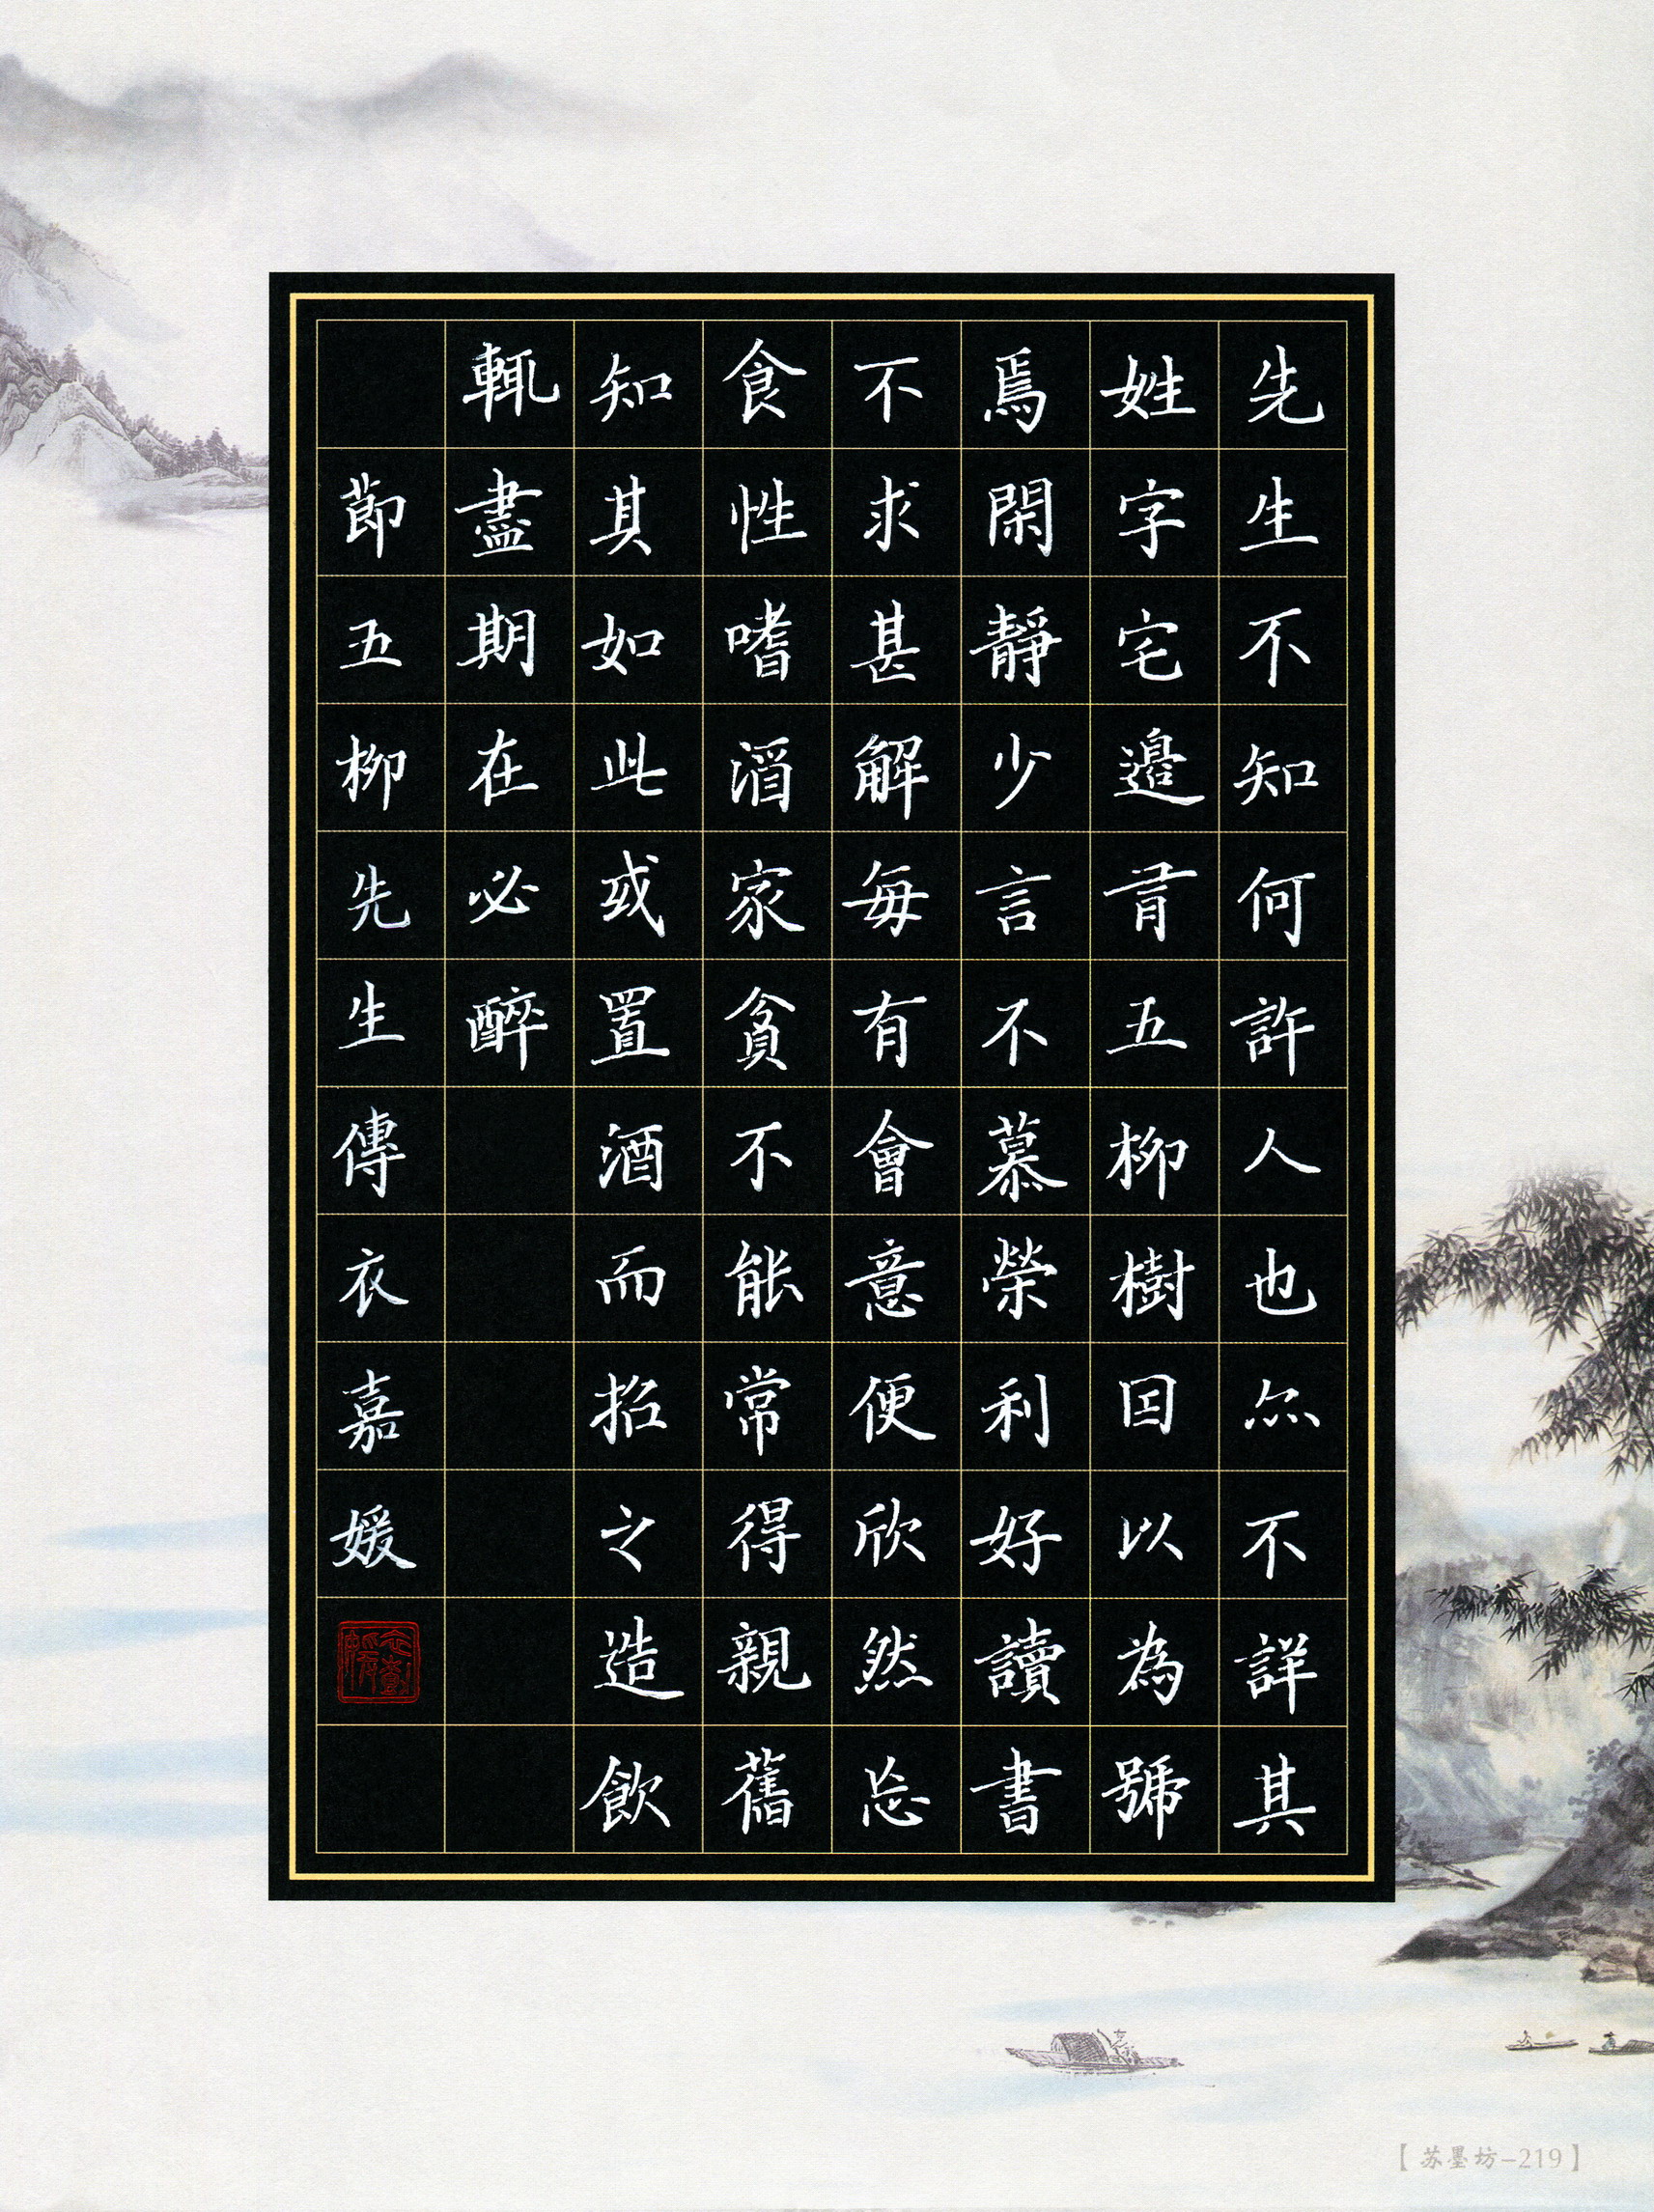 先生不知何許人也尒不詳其
姓字宅邉有五柳樹因以為號
焉閑靜少言不慕榮利好讀書
不求甚解每有會意便欣然忘
食性嗜酒家貧不能常得親舊
知其如此或置酒而招之造飲
輒盡期在必醉
節五柳先生傳衣嘉媛
【苏墨坊-219】